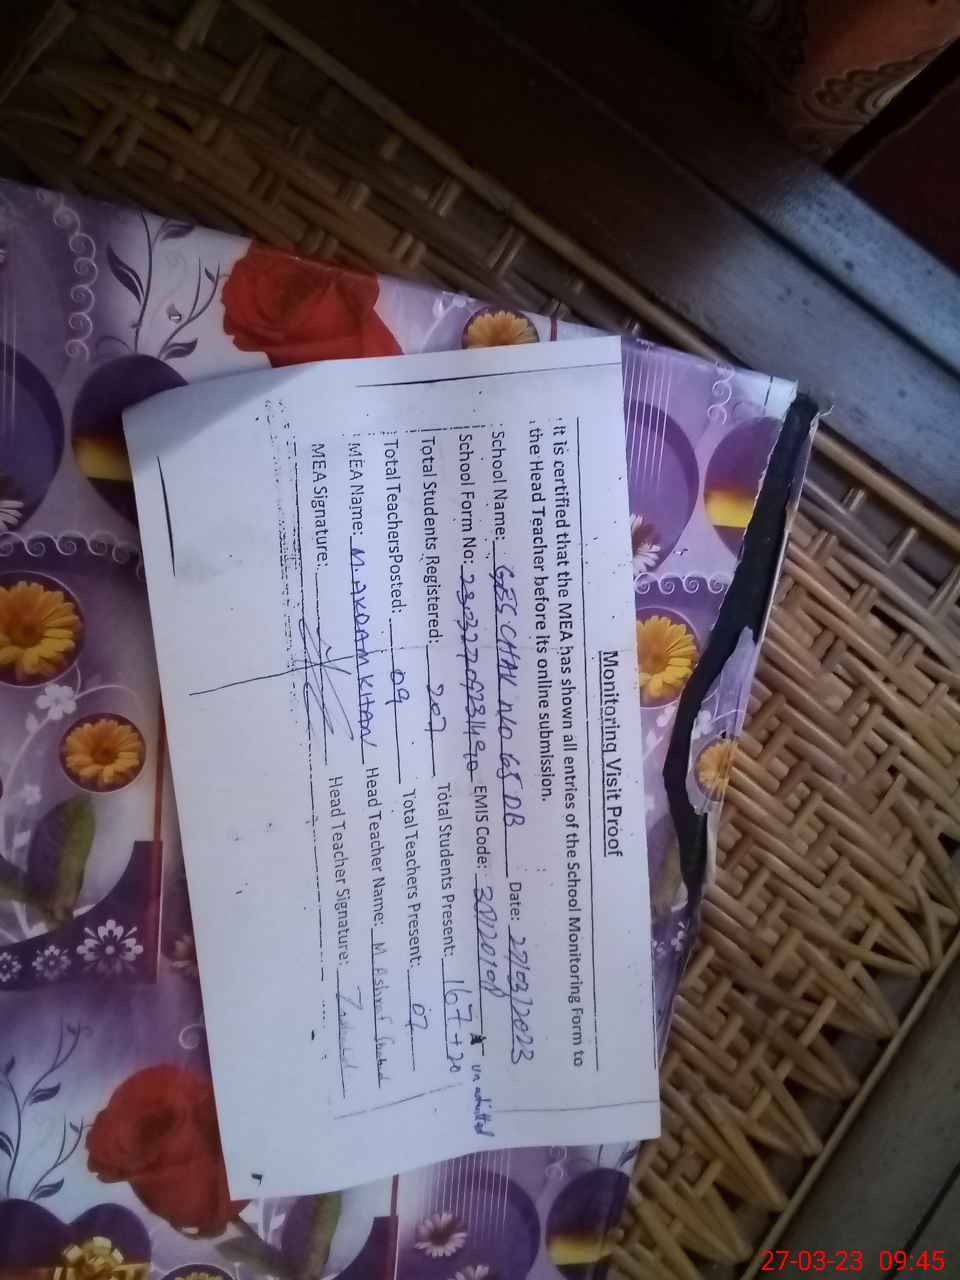 Monitoring Visit Proof
It is certified that the MEA has shown all entries of the School Monitoring Form to
the Head Teacher before its online submission.
School Name: GES CHAK NO 65 DB Date: 27/03/2023
School Form No: EMIS Code:
Total Students Registered: 207 Total Students Present: 167 + 20 un admitted
Total TeachersPosted: 09 Total Teachers Present: 07
MEA Name: M. AKRAM KHAN Head Teacher Name: M Ashraf
MEA Signature: Head Teacher Signature:
27-03-23 09:45